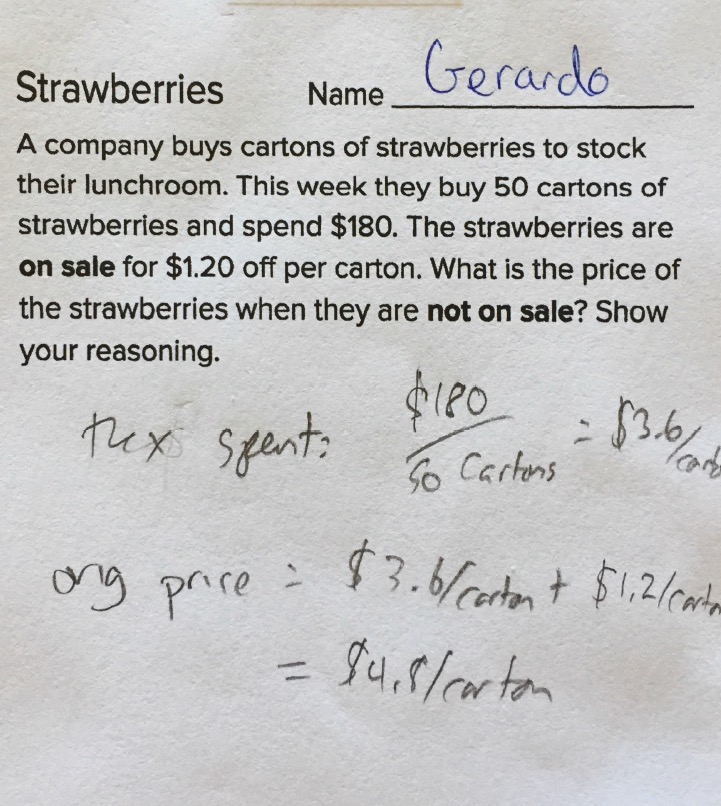 Strawberries Name Gerardo
A company buys cartons of strawberries to stock
their lunchroom. This week they buy 50 cartons of
strawberries and spend $180. The strawberries are
on sale for $1.20 off per carton. What is the price of
the strawberries when they are not on sale? Show
your reasoning.
they spent: $180 / 50 Cartons = $3.6/cart
orig price = $3.6/carton + $1.2/carton
= $4.8/carton